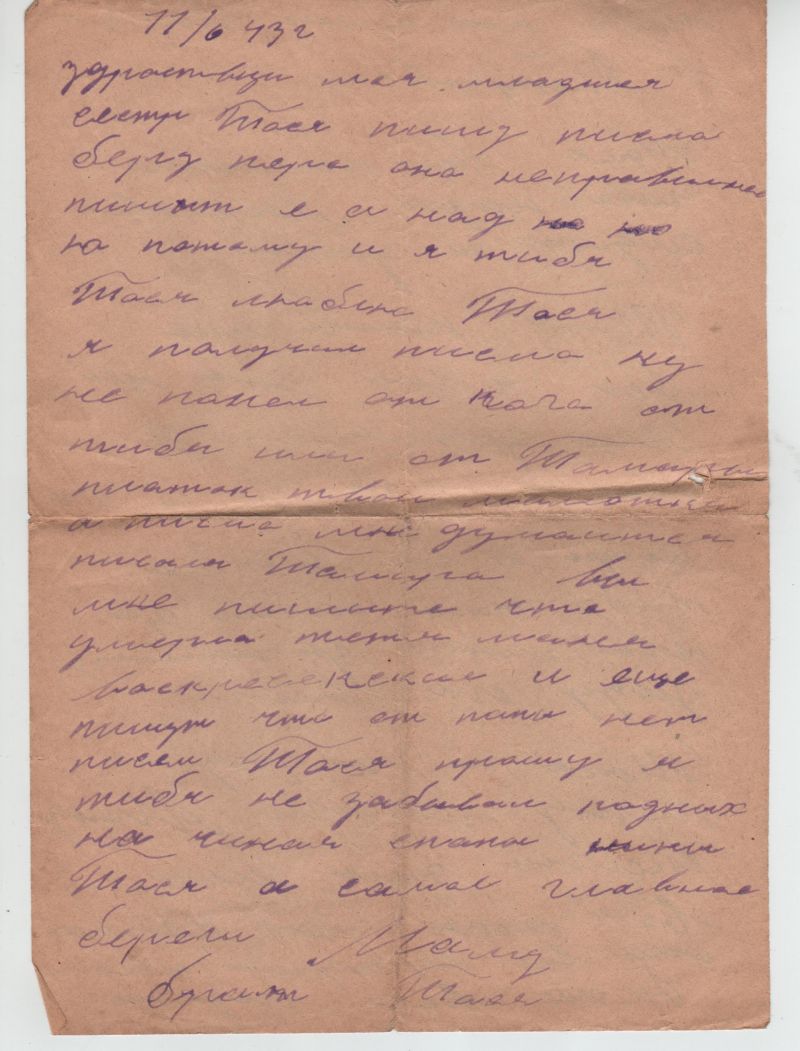 11/6 43 г
здраствци моя младшея
сестр Тася пишу писмо
беру перо оно неправилное
пишыт е а над
ю потому и я тибя
Тася люблю Тася
я получил писмо ну
не понел от кога от
тибя или от Тамары
платок твой
а писмо мне думоится
писала Тамура вы
мне пишыте что
умерла тетя маня
Васкресенская и еще
пишут что от папы нет
писем Тася прошу я
тибя не забывай родных
на чиная спапы
Тася а самое главное
береги Маму
брат Тася